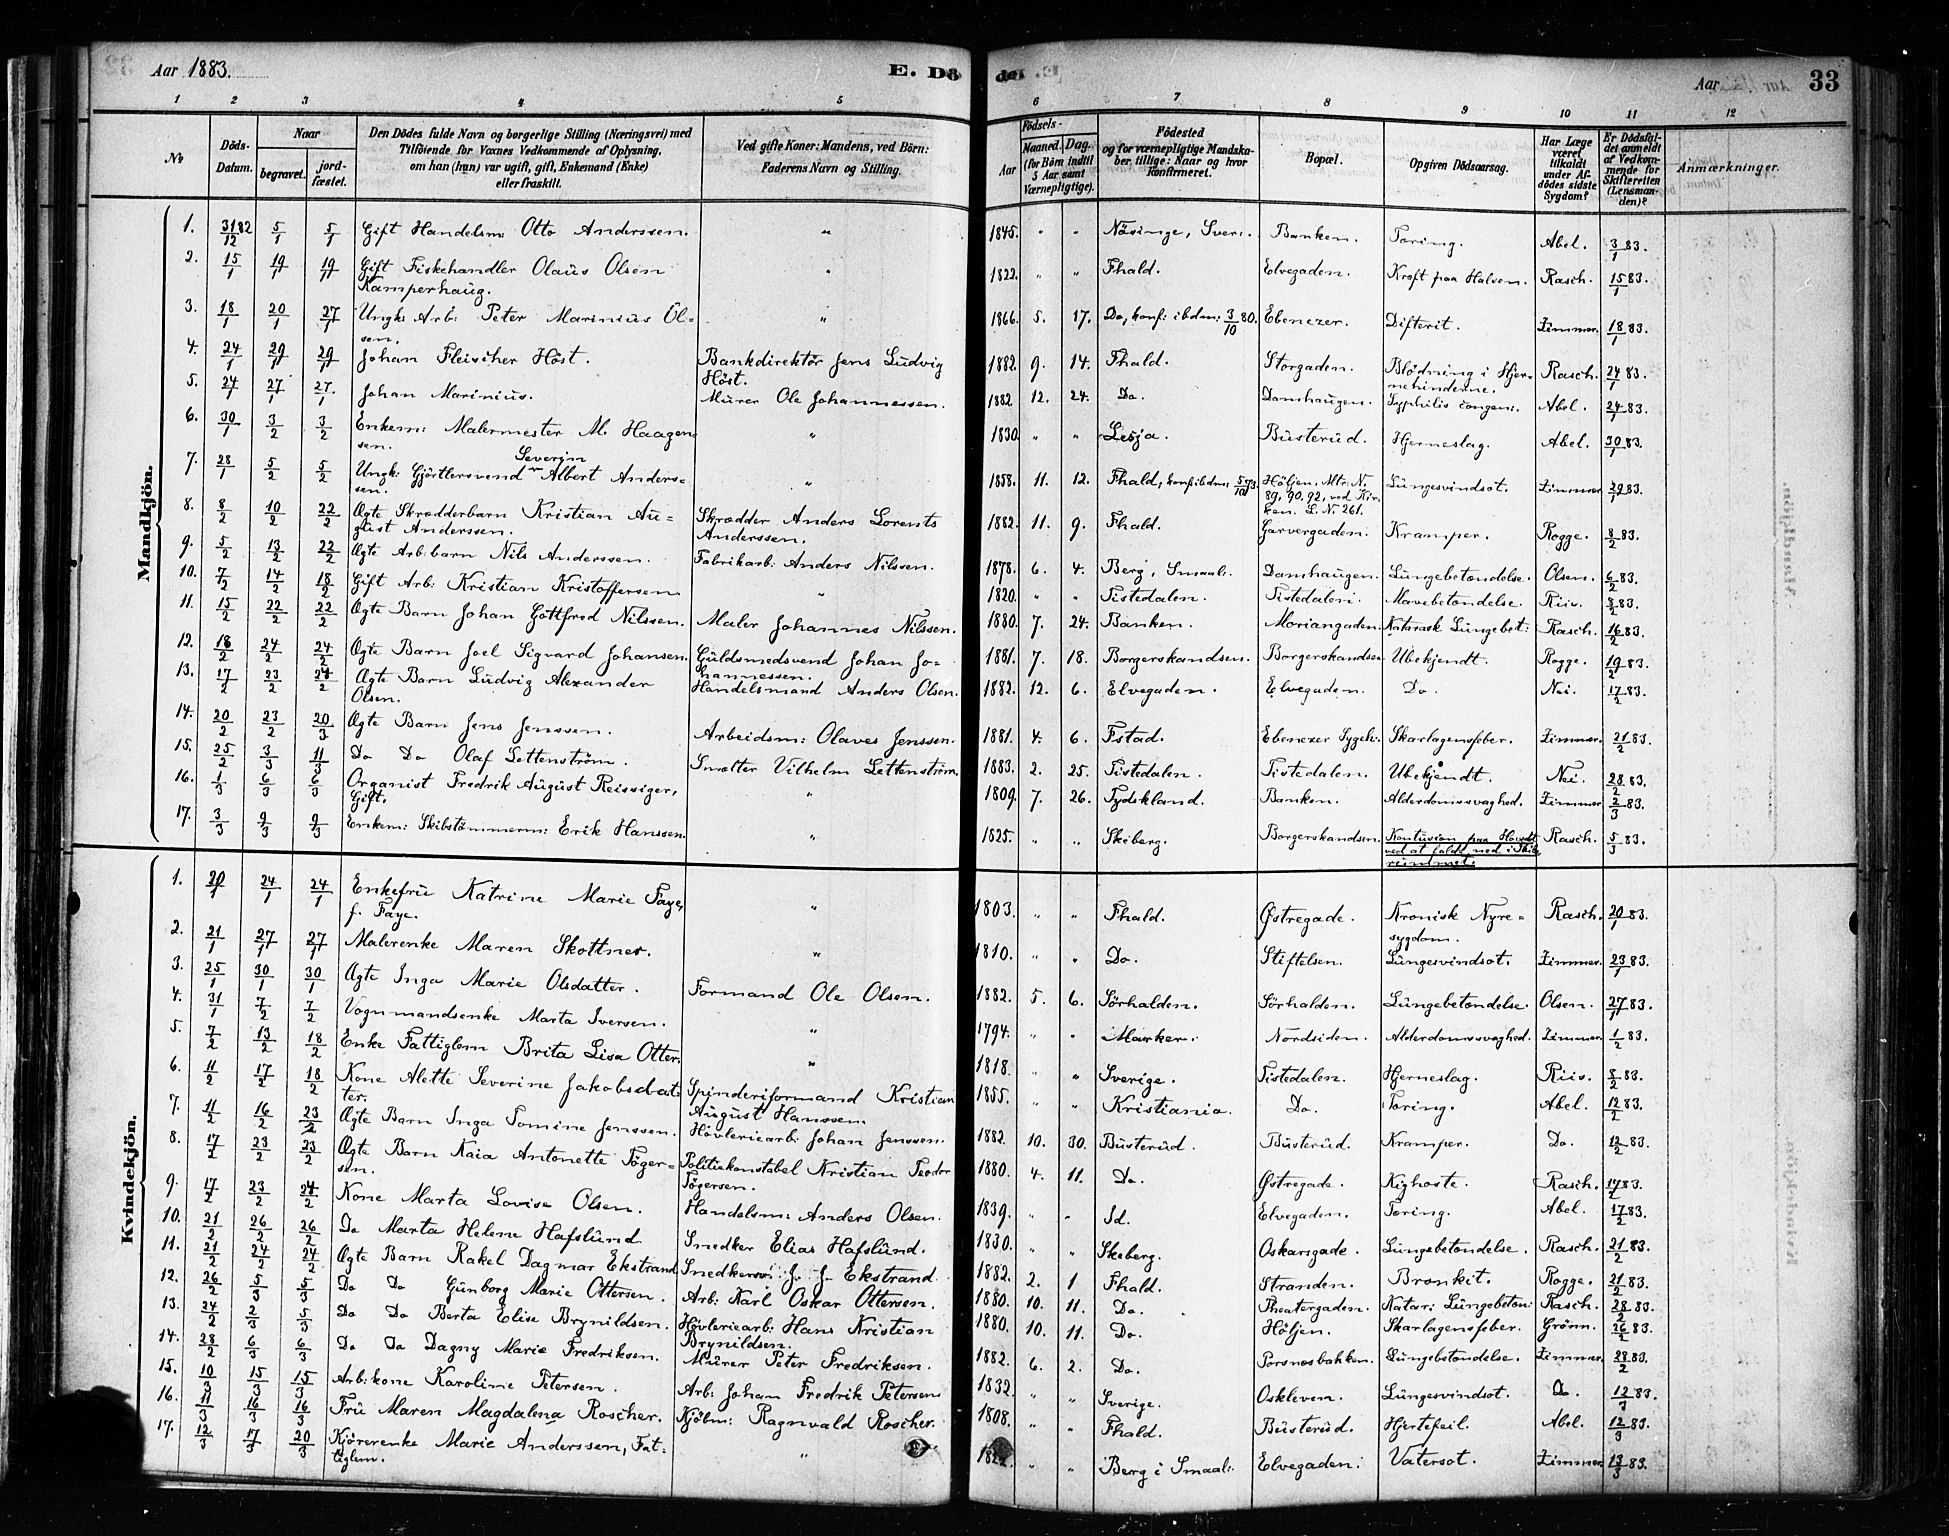 Aar 1883. E. Dö de. Aar 33
1 2 3 4 5 6 7 8 9 10 11 12
No
Döds-Datum.
Naar
begravet.
jordfæstet.
Den Dödes fulde Navn og borgerlige Stilling (Næringsvei) med Tilföiende for Voxnes Vedkommende af Oplysning, om han (hun) var ugift, gift, Enkemand (Enke) eller fraskilt.
Ved gifte Koner: Mandens, ved Börn: Faderens Navn og Stilling.
Födsels-
Aar
Maaned.
Dag.
(for Börn indtil 5 Aar samt Værnepligtige).
Födested og for værnepligtige Mandskaber tillige: Naar og hvor konfirmeret.
Bopæl.
Opgiven Dödsaarsag.
Har Læge været tilkaldt under Afdödes sidste Sygdom?
Er Dödsfaldet anmeldt af Vedkommende for Skifteretten (Lensmanden)?
Anmærkninger.
Mandkjön.
1. 31/12 82 5/1 5/1 Gift Handelsm: Otto Anderssen. " 1845. " " Näsinge, Sver:. Banken. Tæring. Abel. 3/1 83.
2. 15/1 19/1 19/1 Gift Fiskehandler Olaus Olsen Kamperhaug. " 1822. " " Fhald. Elvegaden. Kræft paa Halsen. Rasch. 15/1 83.
3. 18/1 20/1 27/1 Ungk: Arb: Peter Marinius Olsen. " 1866. 5. 17. Do, konf: ibdm: 3/10 80. Ebenezer. Difterit. Zimmer. 18/1 83.
4. 24/1 29/1 29/1 Johan Fleischer Höst. Bankdirektör Jens Ludvig Höst. 1882. 9. 14. Fhald. Storgaden. Blödning i Hjernehinderne. Rasch. 24/1 83.
5. 24/1 27/1 27/1 Johan Marinius. Murer Ole Johannessen. 1882. 12. 24. Do. Damhaugen. Syphilis congen:. Abel. 24/1 83.
6. 30/1 3/2 3/2 Enkem: Malermester M. Haagensen. " 1830. " " Lesja. Busterud. Hjerneslag. Abel. 30/1 83.
7. 28/1 5/2 5/2 Ungk: Gjörtlersvend Severin Albert Anderssen. " 1858. 11. 12. Fhald, konf: ibdm: 5/10 73. Höljen, Mtr. N. 89, 90, 92, ved Kirken. L. No 261. Lungesvindsot. Zimmer. 29/1 83.
8. 8/2 10/2 22/2 Ægte Skrædderbarn Kristian August Anderssen. Skrædder Anders Lorents Anderssen. 1882. 11. 9. Fhald. Garvergaden. Kramper. Rogge. 8/2 83.
9. 5/2 13/2 22/2 Ægte Arb:barn Nils Anderssen. Fabrikarb: Anders Nilssen. 1878. 6. 4. Berg, Smaal:. Damhaugen. Lungebetændelse. Olsen. 6/2 83.
10. 7/2 14/2 18/2 Gift Arb: Kristian Kristoffersen. " 1820. " " Tistedalen. Tistedalen. Mavebetændelse. Riis. 8/2 83.
11. 15/2 22/2 22/2 Ægte Barn Johan Gottfred Nilssen. Maler Johannes Nilssen. 1880. 7. 24. Banken. Moriangaden. Katarask Lungebet: Rasch. 16/2 83.
12. 18/2 24/2 24/2 Ægte Barn Joel Sigvard Johansen. Guldsmedsvend Johan Johannessen. 1881. 7. 18. Borgerskandsen. Borgerskandsen. Ubekjendt. Rogge. 19/2 83.
13. 17/2 23/2 24/2 Ægte Barn Ludvig Alexander Olsen. Handelsmand Anders Olsen. 1882. 12. 6. Elvegaden. Elvegaden. Do. Nei. 17/2 83.
14. 20/2 23/2 20/3 Ægte Barn Jens Jenssen. Arbeidsm: Olaves Jenssen. 1881. 4. 6. Fstad. Ebenezer Sygeh:. Skarlagensfeber. Zimmer. 21/2 83.
15. 25/2 3/3 11/3 Do Do Olaf Lettenström. Smætter Vilhelm Lettenström. 1883. 2. 25. Tistedalen. Tistedalen. Ubekjendt. Nei. 28/2 83.
16. 1/3 6/3 6/3 Organist Fredrik August Reissiger, Gift. " 1809. 7. 26. Tydskland. Banken. Alderdomssvaghed. Zimmer. 2/3 83.
17. 3/3 9/3 9/3 Enkem: Skibstömmerm: Erik Hanssen. " 1825. " " Skeberg. Borgerskandsen. Kontusion paa Hovedet ved at falde ned i Skibsrummet. Rasch. 5/3 83.
Kvindekjön.
1. 20/1 24/1 24/1 Enkefru Katrine Marie Faye, f. Faye. " 1803. " " Fhald. Østregade. Kronisk Nyresygdom. Rasch. 20/1 83.
2. 21/1 27/1 27/1 Malerenke Maren Skottner. " 1810. " " Do. Stiftelsen. Lungesvindsot. Zimmer. 23/1 83.
3. 25/1 30/1 30/1 Ægte Inga Marie Olsdatter. Formand Ole Olsen. 1882. 5. 6. Sörhalden. Sörhalden. Lungebetændelse. Olsen. 27/1 83.
4. 31/1 7/2 7/2 Vognmandsenke Marta Iversen. " 1794. " " Marker. Nordsiden. Alderdomssvaghed. Zimmer. 1/2 83.
5. 7/2 13/2 18/2 Enke Fattiglem Brita Lisa Otter. " 1818. " " Sverige. Tistedalen. Hjerneslag. Riis. 8/2 83.
6. 11/2 17/2 18/2 Kone Alette Severine Jakobsdatter. Spinderiformand Kristian August Hanssen. 1855. " " Kristiania. Do. Tæring. Abel. 12/2 83.
7. 11/2 16/2 23/2 Ægte Barn Inga Tomine Jenssen. Hövleriearb: Johan Jenssen. 1882. 10. 30. Busterud. Busterud. Kramper. Do. 12/2 83.
8. 17/2 23/2 23/2 Ægte Barn Kaia Antonette Tögersen. Politiekonstabel Kristian Teodor Tögersen. 1880. 4. 11. Do. Østregade. Kighoste. Rasch. 17/2 83.
9. 17/2 23/2 24/2 Kone Marta Lovise Olsen. Handelsm: Anders Olsen. 1839. " " Id. Elvegaden. Tæring. Abel. 17/2 83.
10. 21/2 26/2 26/2 Do Marta Helene Hafslund Snedker Elias Hafslund. 1830. " " Skeberg. Oskarsgade. Lungebetændelse. Rasch. 21/2 83.
11. 21/2 24/2 24/2 Ægte Barn Rakel Dagmar Ekstrand Snedkersv: J. J. Ekstrand. 1882. 2. 1 Fhald. Stranden. Bronkit. Rogge. 21/2 83.
12. 26/2 5/3 5/3 Do Do Gunborg Marie Ottersen. Arb: Karl Oskar Ottersen. 1880. 10. 11. Do. Theatergaden. Katar: Lungebetæn: Rasch. 28/2 83.
13. 24/2 2/3 5/3 Do Do Berta Elise Brynildsen. Hövleriearb: Hans Kristian Brynildsen. 1880. 10. 11. Do. Höljen. Skarlagensfeber. Grönn. 26/2 83.
14. 28/2 6/3 6/3 Do Do Dagny Marie Fredriksen. Murer Peter Fredriksen. 1882. 6. 2. Do. Porsnesbakken. Lungebetændelse. Zimmer. 28/2 83.
15. 10/3 15/3 15/3 Arb:kone Karoline Petersen. Arb: Johan Fredrik Petersen 1832. " " Sverige. Oskleven. Lungesvindsot. Do. 12/3 83.
16. 11/3 16/3 16/3 Fru Maren Magdalena Roscher. Kjöbm: Ragnvald Roscher. 1808. " " Fhald. Busterud. Hjertefeil. Abel. 12/3 83.
17. 12/3 17/3 20/3 Kjörerenke Marie Anderssen, Fattiglem. " " " Berg i Smaal: Elvegaden. Vatersot. Zimmer. 13/3 83.